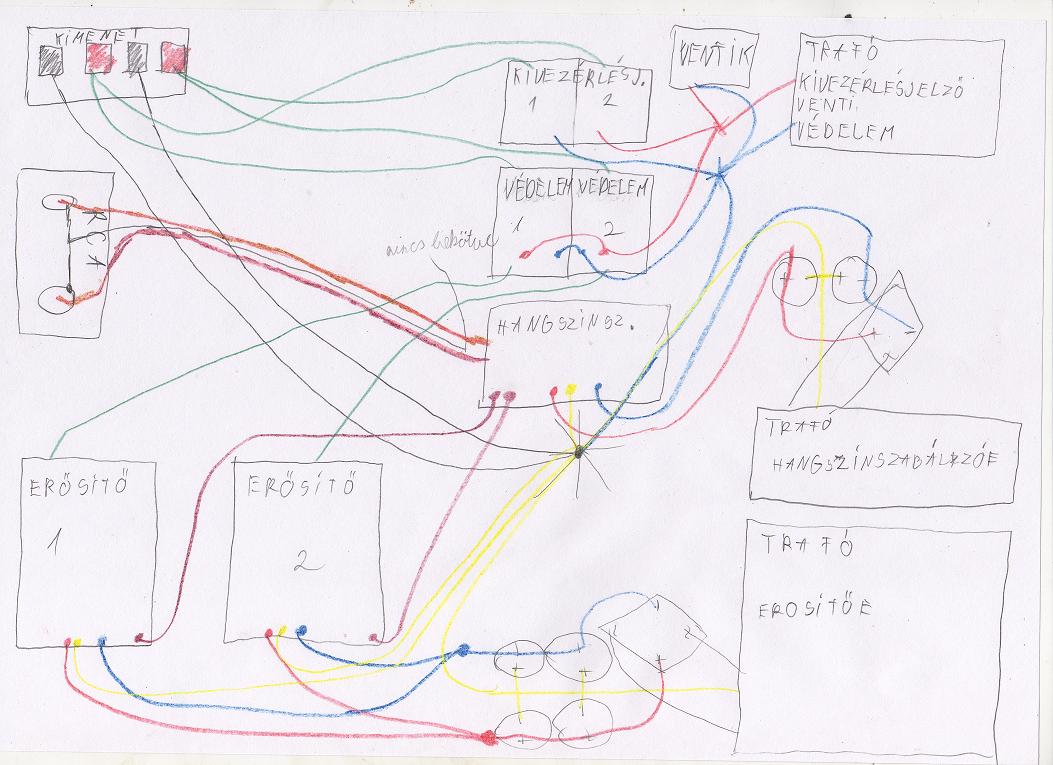 KIMENET
KIVEZÉRLÉSJ.
1
2
VENTIK
TRAFÓ
KIVEZÉRLÉSJELZŐ
VENTI.
VÉDELEM
RCA
VÉDELEM
1
VÉDELEM
2
nincs bekötve
HANGSZÍNSZ.
+
+
+
-
~
~
TRAFÓ
HANGSZÍNSZABÁLYZÓÉ
ERŐSÍTŐ
1
ERŐSÍTŐ
2
TRAFÓ
EROSÍTŐÉ
+
-
+
-